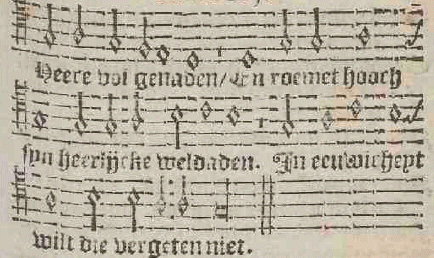 Heere vol genaden/ En roemet hooch
syn heerlijcke weldaden. In eeuwicheyt
wilt die vergeten niet.